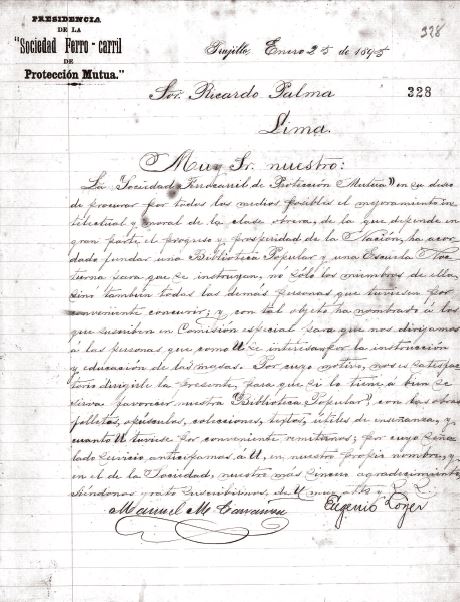 PRESIDENCIA
DE LA
"Sociedad Ferro-carril
DE
Protección Mutua."
328
Trujillo Enero 25 de 1895
Sor. Ricardo Palma
328
Lima.
Muy Sr. nuestro:
La "Sociedad Ferrocarril de Protección Mutua" en su deseo
de procurar por todos los medios posibles el mejoramiento in-
telectual y moral de la clase obrera, de la que depende en
gran parte el progreso y prosperidad de la Nación, ha acor-
dado fundar una Biblioteca Popular y una Escuela Noc-
turna para que se instruyan, no sólo los miembros de ella,
sino también todas las demás personas que tuviesen por
conveniente concurrir; y con tal objeto ha nombrado á los
que suscriben en Comisión especial para que nos dirijamos
á las personas que como U se interesan por la instrucción
y educación de las masas. Por cuyo motivo, nos es satisfac-
torio dirigirle la presente, para que si lo tiene á bien se
sirva favorecer nuestra "Biblioteca Popular", con las obras
folletos, opúsculos, colecciones, textos, útiles de enseñanza, y
cuanto U tuviese por conveniente remitirnos; por cuyo seña-
lado servicio anticipamos, á U, en nuestro propio nombre, y
en el de la Sociedad, nuestro más sincero agradecimiento
siéndonos grato suscribirnos, de U muy attos y S. S.
Manuel M.
Eugenio